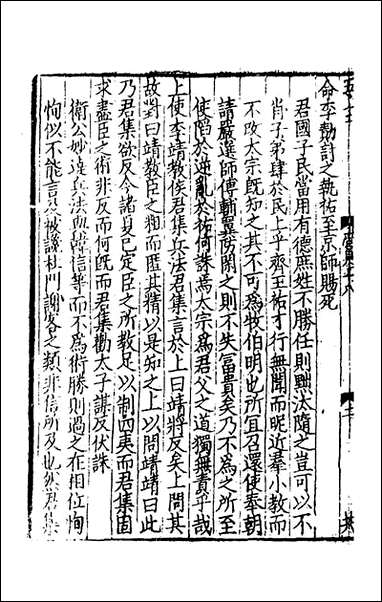 命李勣討之執祐至京師賜死
君國子民當用有德庶姓不勝任則黜汰隨之豈可以不
肖子弟肆於民上乎齊王祐才行無聞而昵近羣小教而
不改太宗既知之其不可為牧伯明也所宜召還使奉朝
請嚴選師傅輔導防閑之則不失富貴矣乃不為之所至
使陷於逆亂於祐何誅焉太宗為君父之道獨無責乎哉
上使李靖教侯君集兵法君集言於上曰靖將反矣上問其
故對曰靖教臣之粗而匿其精以是知之上以問靖靖曰此
乃君集欲反今諸夏已定臣之所教足以制四夷而君集固
求盡臣之術非反而何既而君集勸太子謀反伏誅
衛公妙達兵法與韓信等而不為術勝則過之在相位恂
恂似不能言及被讒杜門謝客之類非信所及也然君集